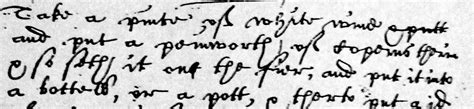 Take a pinte of white wine & putt
and put a peniworth of Coperus therin
& so seth it one the fier, and put it into
a bottell, or a pott, & therto put a